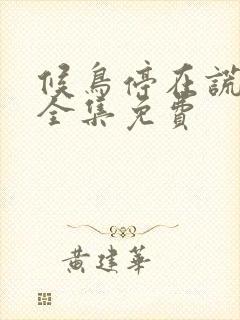 候鳥停在謊
全集免費
黃建華